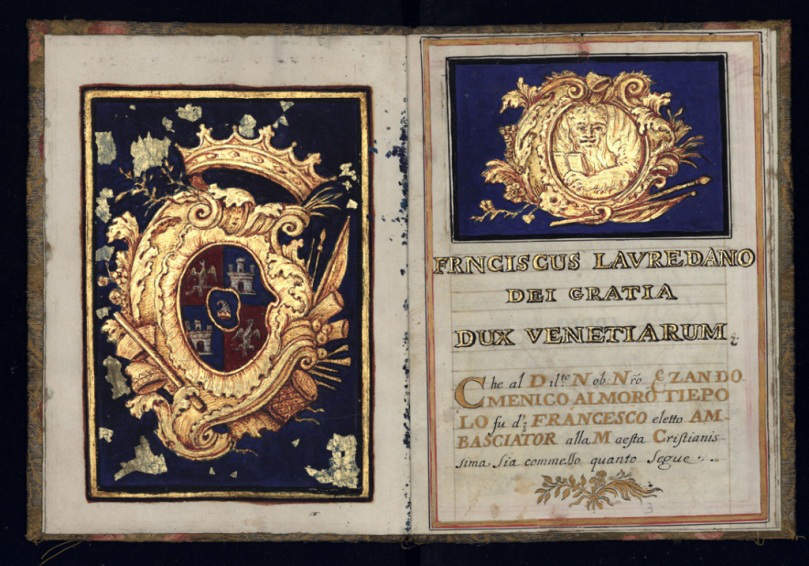 FRNCISCUS LAVREDANO
DEI GRATIA
DUX VENETIARUM
Che al Dil:to Nob: Nro ZAN DO
MENICO ALMORO TIEPO
LO fu d: FRANCESCO eletto AM-
BASCIATOR alla Maesta Cristianis-
sima sia commesso quanto segue
3